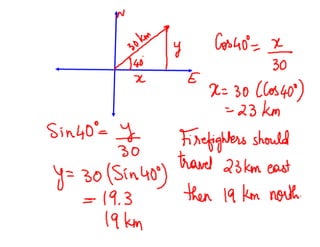 N
30 km
y
40°
x
E
Cos40° = x/30
x = 30 (Cos40°)
= 23 km
Sin40° = y/30
y = 30 (Sin40°)
= 19.3
19 km
Firefighters should
travel 23 km east
then 19 km north.